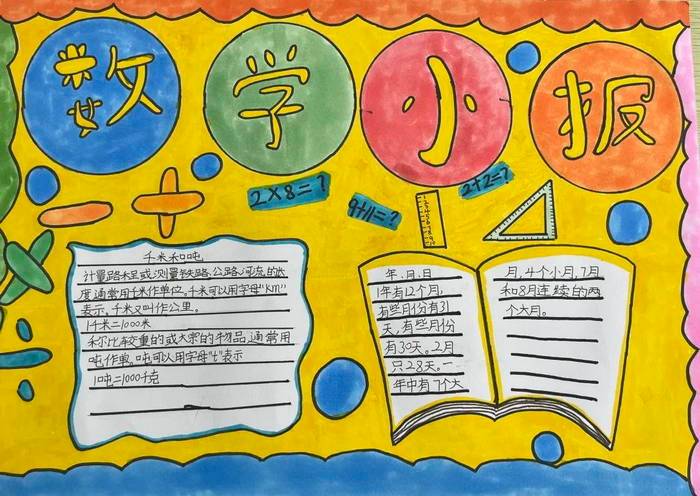 数学小报
2×8=?
9+11=?
2+2=?
千米和吨
计量路程或测量铁路、公路、河流的长
度通常用千米作单位。千米可以用字母"km"
表示,千米又叫作公里。
1千米=1000米
称比较重的或大宗的物品,通常用
吨作单。吨可以用字母"t"表示
1吨=1000千克
年、月、日
1年有12个月,
有些月份有31
天,有些月份
有30天。2月
只28天。一
年中有7个大
月,4个小月,7月
和8月连续的两
个大月。